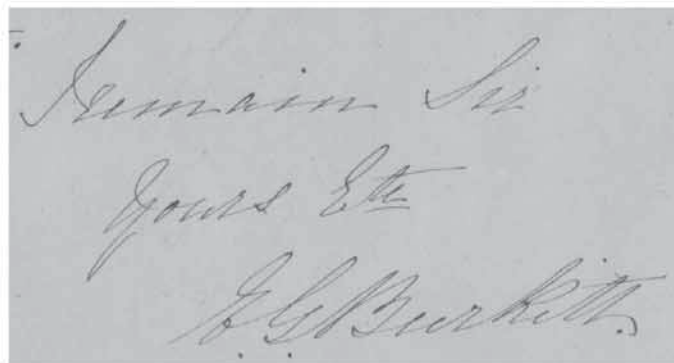 I remain Sir
Yours Etc
G Burkitt